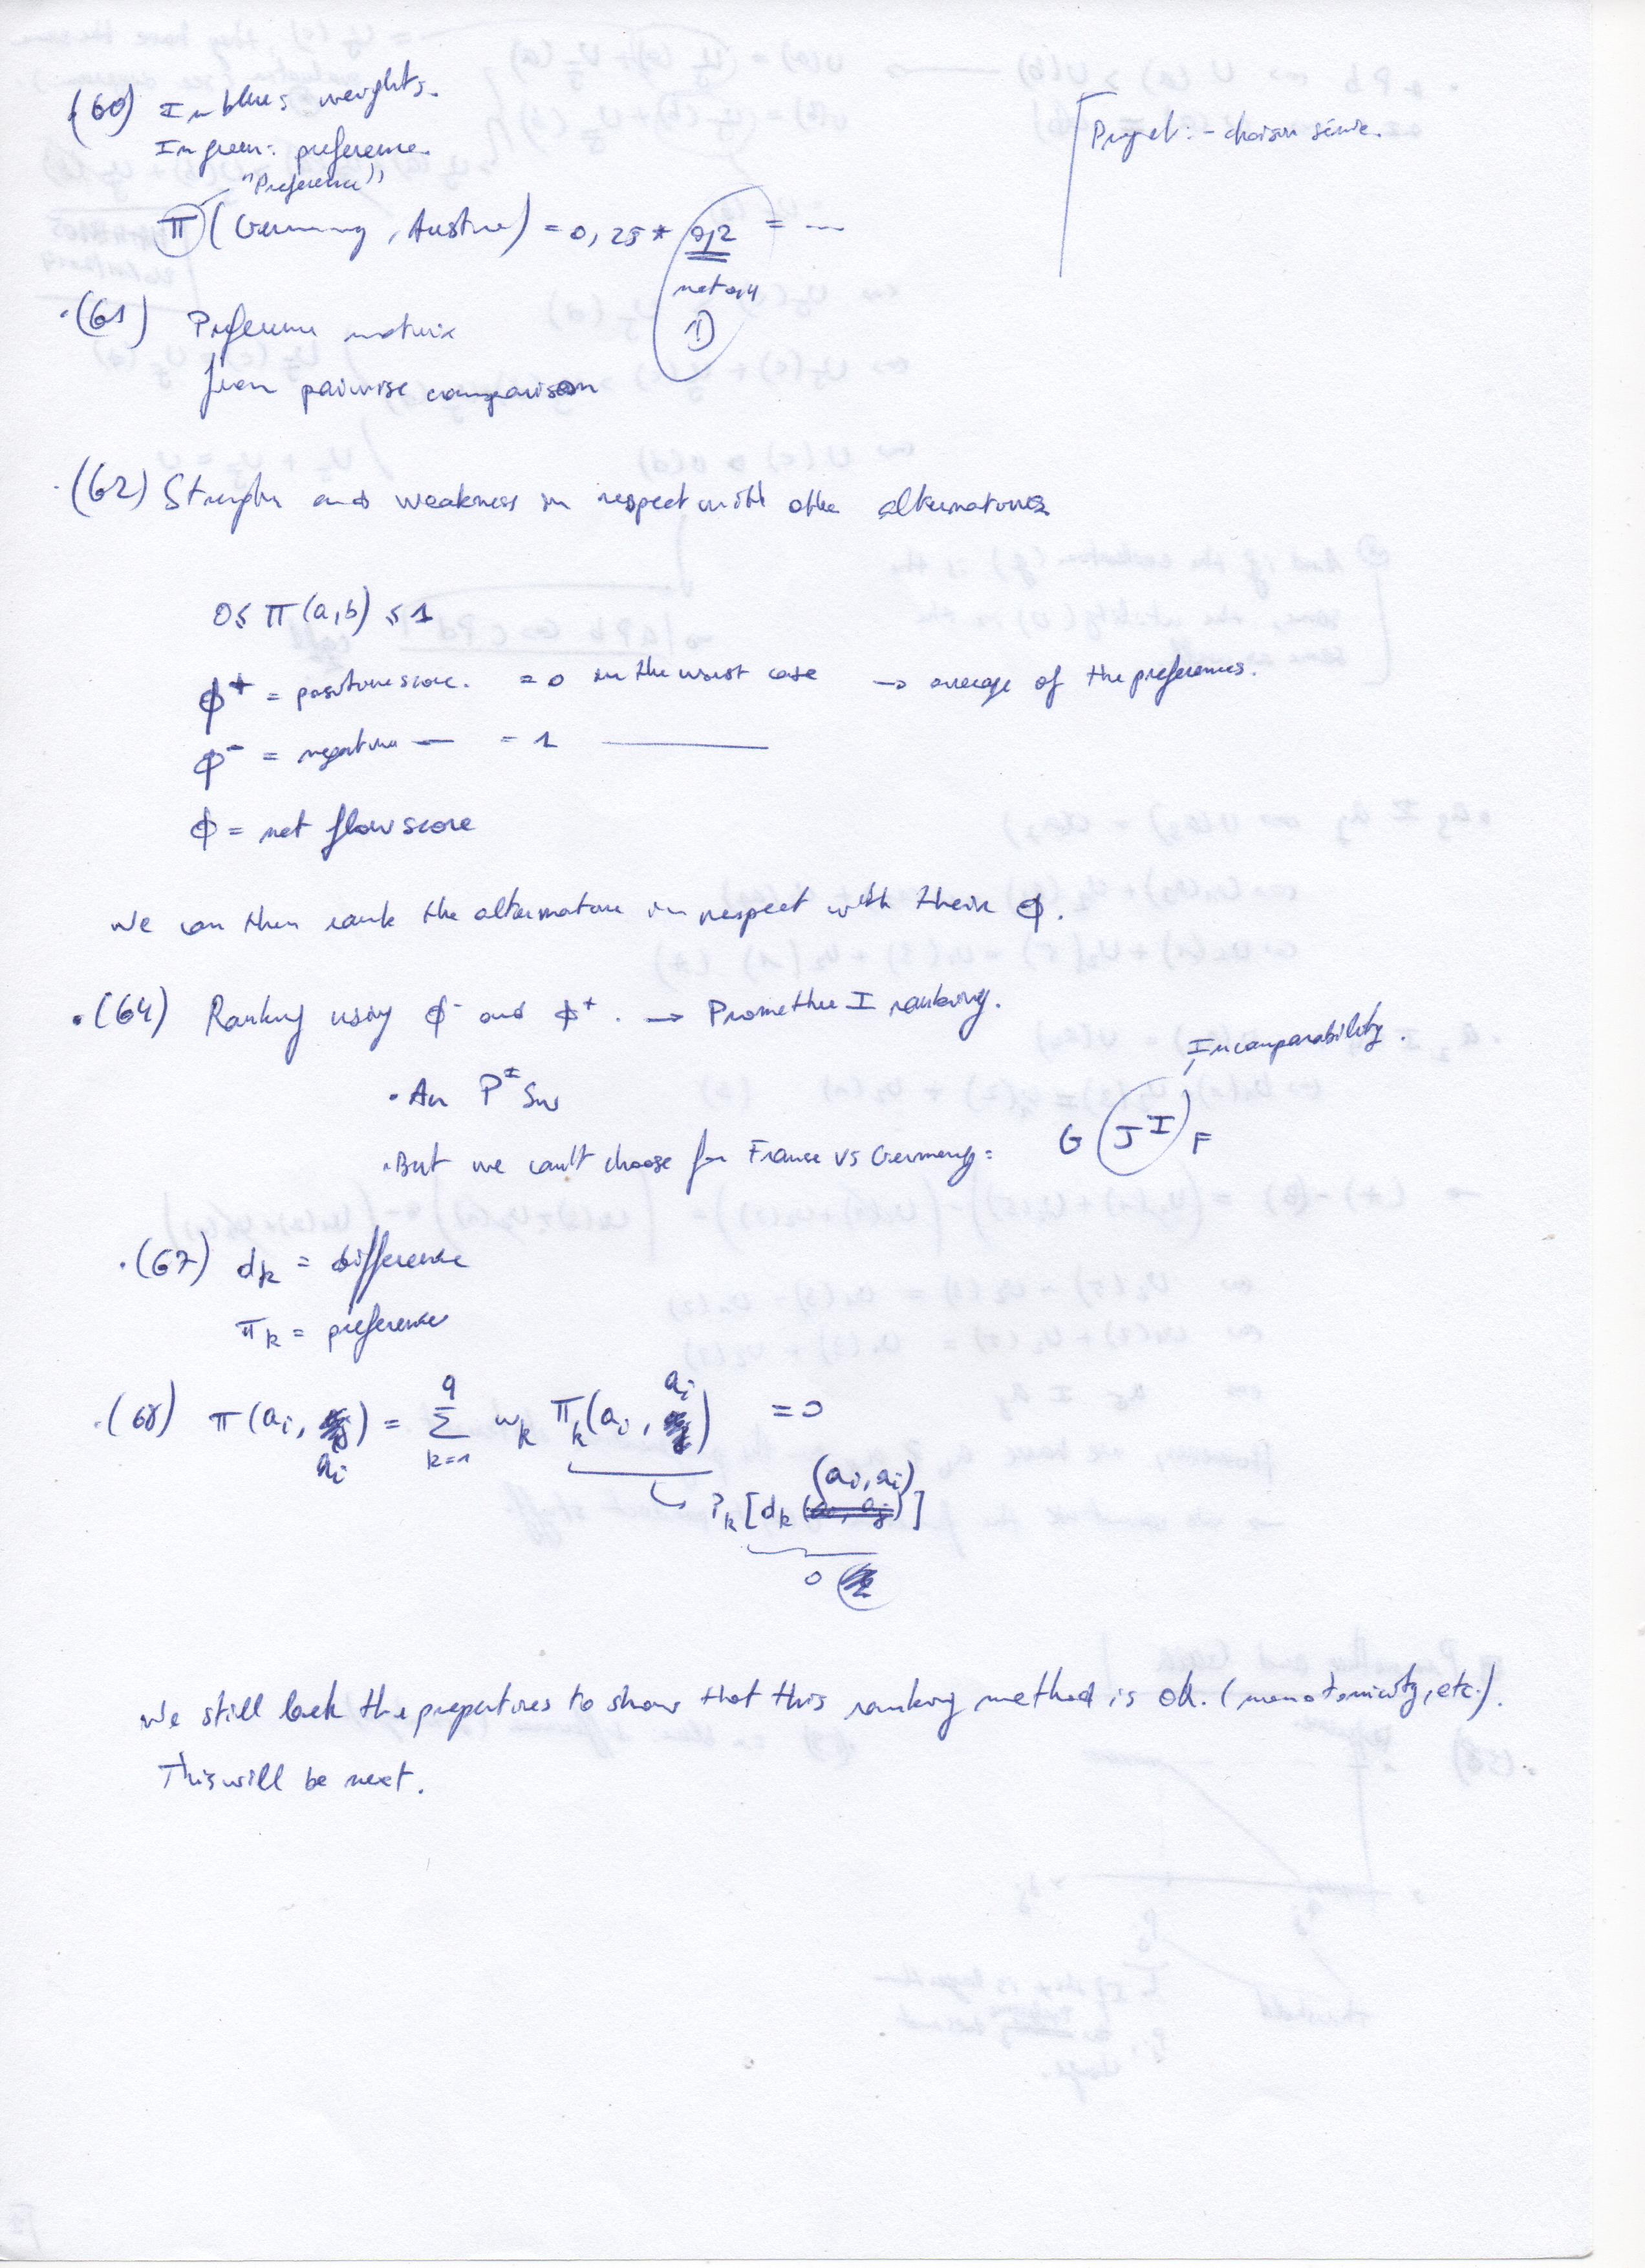 (60) In blue: weights.
In green: preference.
"Preference"
π (Germany, Austria) = 0,25 * 0,2 = ...
not 0,4
①
Projet: - choisir série.
·(61) Preference matrix
from pairwise comparison
·(62) Strengths and weakness in respect with other alternatives
0 ≤ π(a,b) ≤ 1
ϕ⁺ = positive score. = 0 in the worst case → average of the preferences.
ϕ⁻ = negative — = 1 ———
ϕ = net flow score
We can then rank the alternative in respect with their ϕ.
·(64) Ranking using ϕ⁻ and ϕ⁺. → Promethee I ranking.
· Au Pᴵ Sw
Incomparability.
· But we can't choose for France vs Germany: G Jᴵ F
·(67) dk = difference
πk = preference
·(68) π(ai, ai) = Σ k=1 q wk πk(ai, ai) = 0
Pk [dk (ai, ai)]
0
We still lack the properties to show that this ranking method is ok. (monotonicity, etc.).
This will be next.